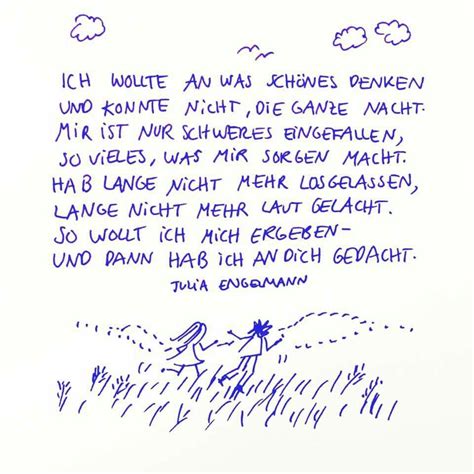 ICH WOLLTE AN WAS SCHÖNES DENKEN
UND KONNTE NICHT, DIE GANZE NACHT.
MIR IST NUR SCHWERES EINGEFALLEN,
SO VIELES, WAS MIR SORGEN MACHT.
HAB LANGE NICHT MEHR LOSGELASSEN,
LANGE NICHT MEHR LAUT GELACHT.
SO WOLLT ICH MICH ERGEBEN–
UND DANN HAB ICH AN DICH GEDACHT.
JULIA ENGELMANN